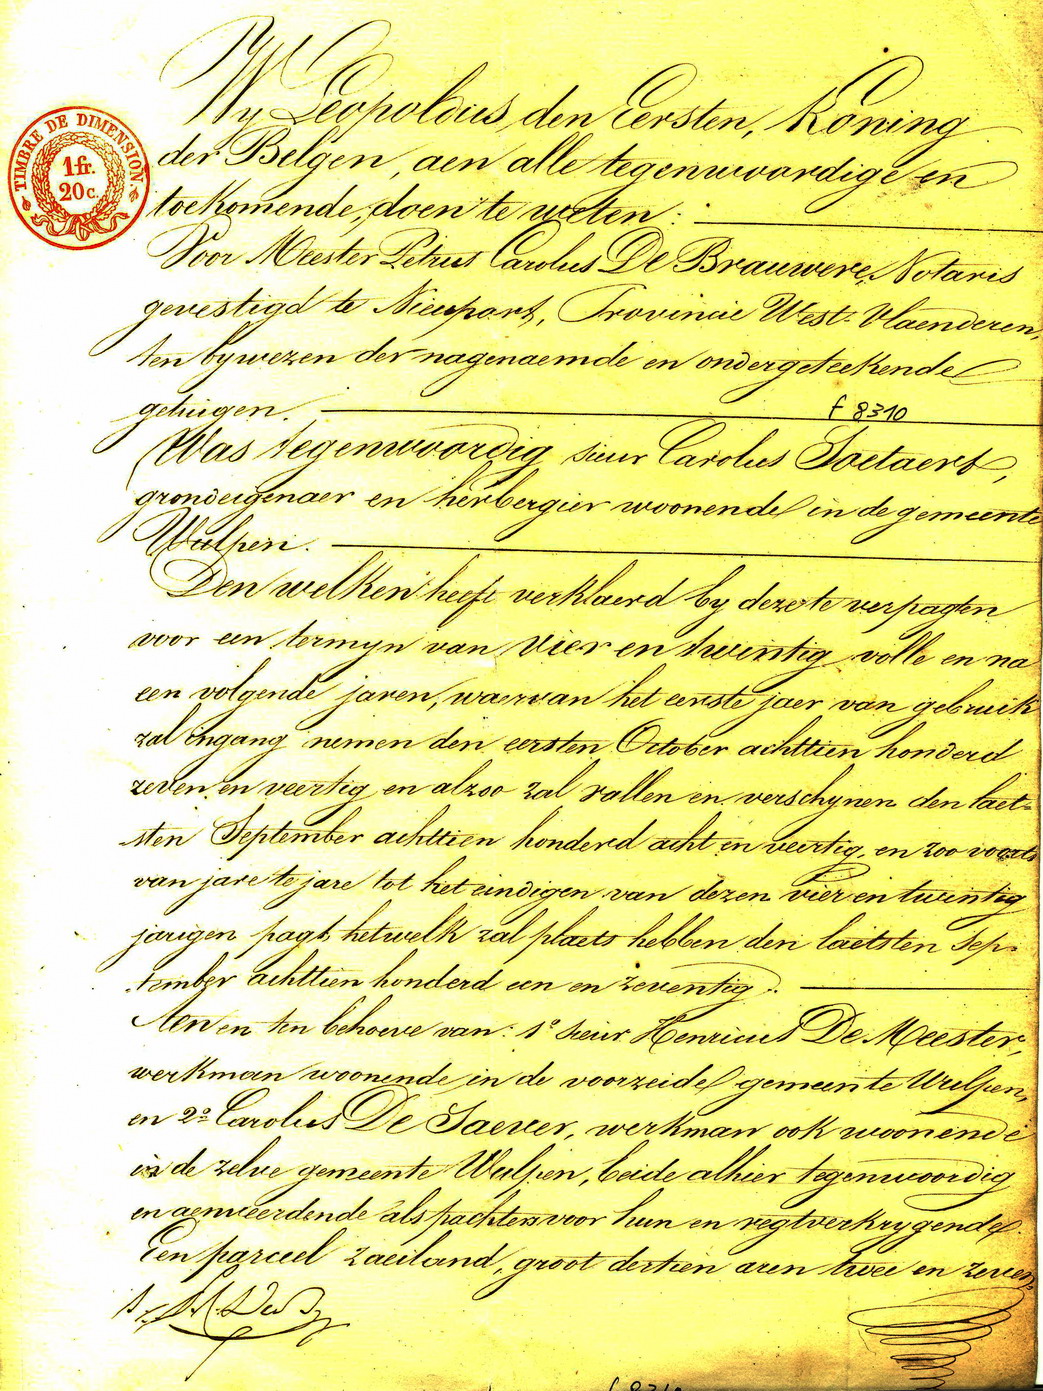 Wy Leopoldus den Eersten, Koning
der Belgen, aen alle tegenwoordige en
toekomende, doen te weten :
TIMBRE DE DIMENSION
1 fr.
20 c.
Voor Meester Petrus Carolus De Brauwere, Notaris
gevestigd te Nieuport, Provincie West-Vlaenderen,
ten bywezen der nagenaemde en ondergeteekende
getuigen.
f 8310
Was tegenwoordig sieur Carolus Soetaert,
grondeigenaer en herbergier woonende in de gemeente
Wulpen.
Den welken heeft verklaerd by deze te verpagten
voor een termyn van vier en twintig volle en na
een volgende jaren, waervan het eerste jaer van gebruik
zal ingang nemen den eersten October achttien honderd
zeven en veertig en alzoo zal vallen en verschynen den laet-
sten September achttien honderd acht en veertig, en zoo voorts
van jare te jare tot het eindigen van dezen vier en twintig
jarigen pagt, hetwelk zal plaets hebben den laetsten Sep-
tember achttien honderd een en zeventig.
Aen en ten behoeve van : 1° sieur Henricus De Meester,
werkman woonende in de voorzeide gemeente Wulpen,
en 2° Carolus De Saever, werkman ook woonende
in de zelve gemeente Wulpen, beide alhier tegenwoordig
en aenveerdende als pachters voor hun en regtverkrygende
Een parceel zaeiland, groot dertien aren twee en zeven-